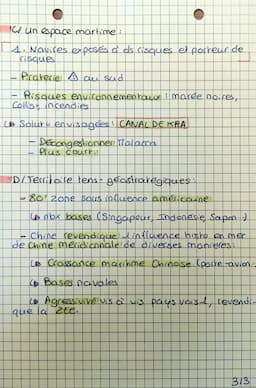 C/ un espace maritime :
1. Navires exposés à ds risques et porteur de
risques
- Piraterie ⚠ au sud
- Risques environnementaux : marée noires,
Collis°, incendies
↳ Solut° envisagées : CANAL DE KRA
- Décongestionner Malacca
- Plus court.
D/ Territoire tens° géostratégiques :
- 80' zone sous influence américaine
↳ nbx bases (Singapour, Indonésie, Japon.)
- Chine revendique l'influence histo en mer
de Chine méridionale de diverses manières.
↳ Croissance maritime Chinoise (porte-avion.
↳ Bases navales
↳ Agressivité vis à vis pays vois
que la ZEE.
3/3